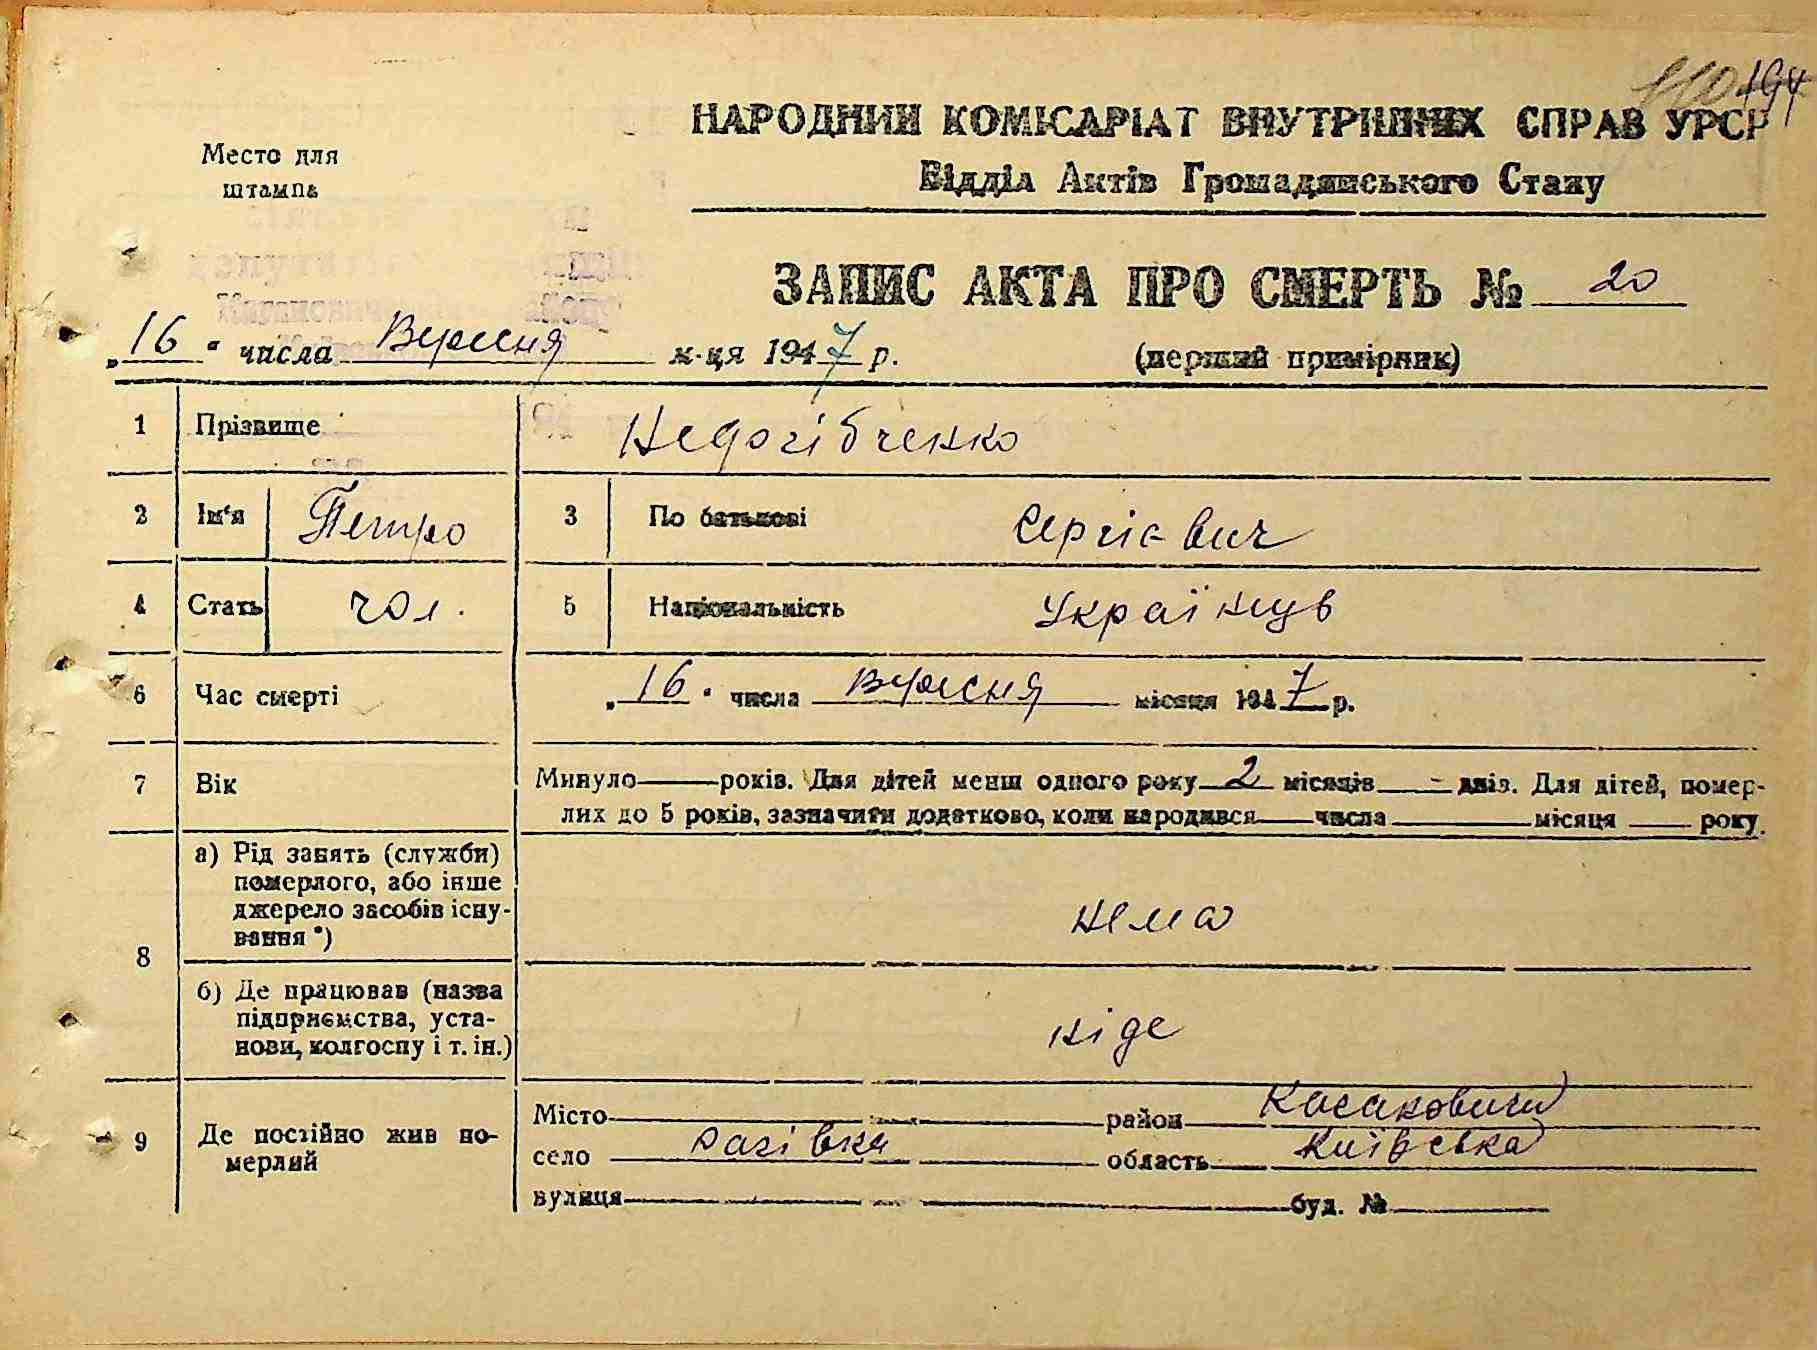 194
НАРОДНИЙ КОМІСАРІАТ ВНУТРІШНІХ СПРАВ УРСР
Место для
штампа
Відділ Актів Громадянського Стану
ЗАПИС АКТА ПРО СМЕРТЬ № 20
„16" числа Вересня м-ця 1947 р. (перший примірник)
1 Прізвище Недогібченко
2 Ім'я Петро 3 По батькові Сергієвич
4 Стать чол. 5 Національність Українець
6 Час смерті „16" числа вересня місяця 1947 р.
7 Вік Минуло — років. Для дітей менш одного року 2 місяців - днів. Для дітей, помер-
лих до 5 років, зазначити додатково, коли народився числа місяця року.
8 а) Рід занять (служби)
померлого, або інше
джерело засобів існу-
вання *) нема
б) Де працював (назва
підприємства, уста-
нови, колгоспу і т. ін.) ніде
9 Де постійно жив по-
мерлий
Місто район
село область Київська
вулиця буд. №